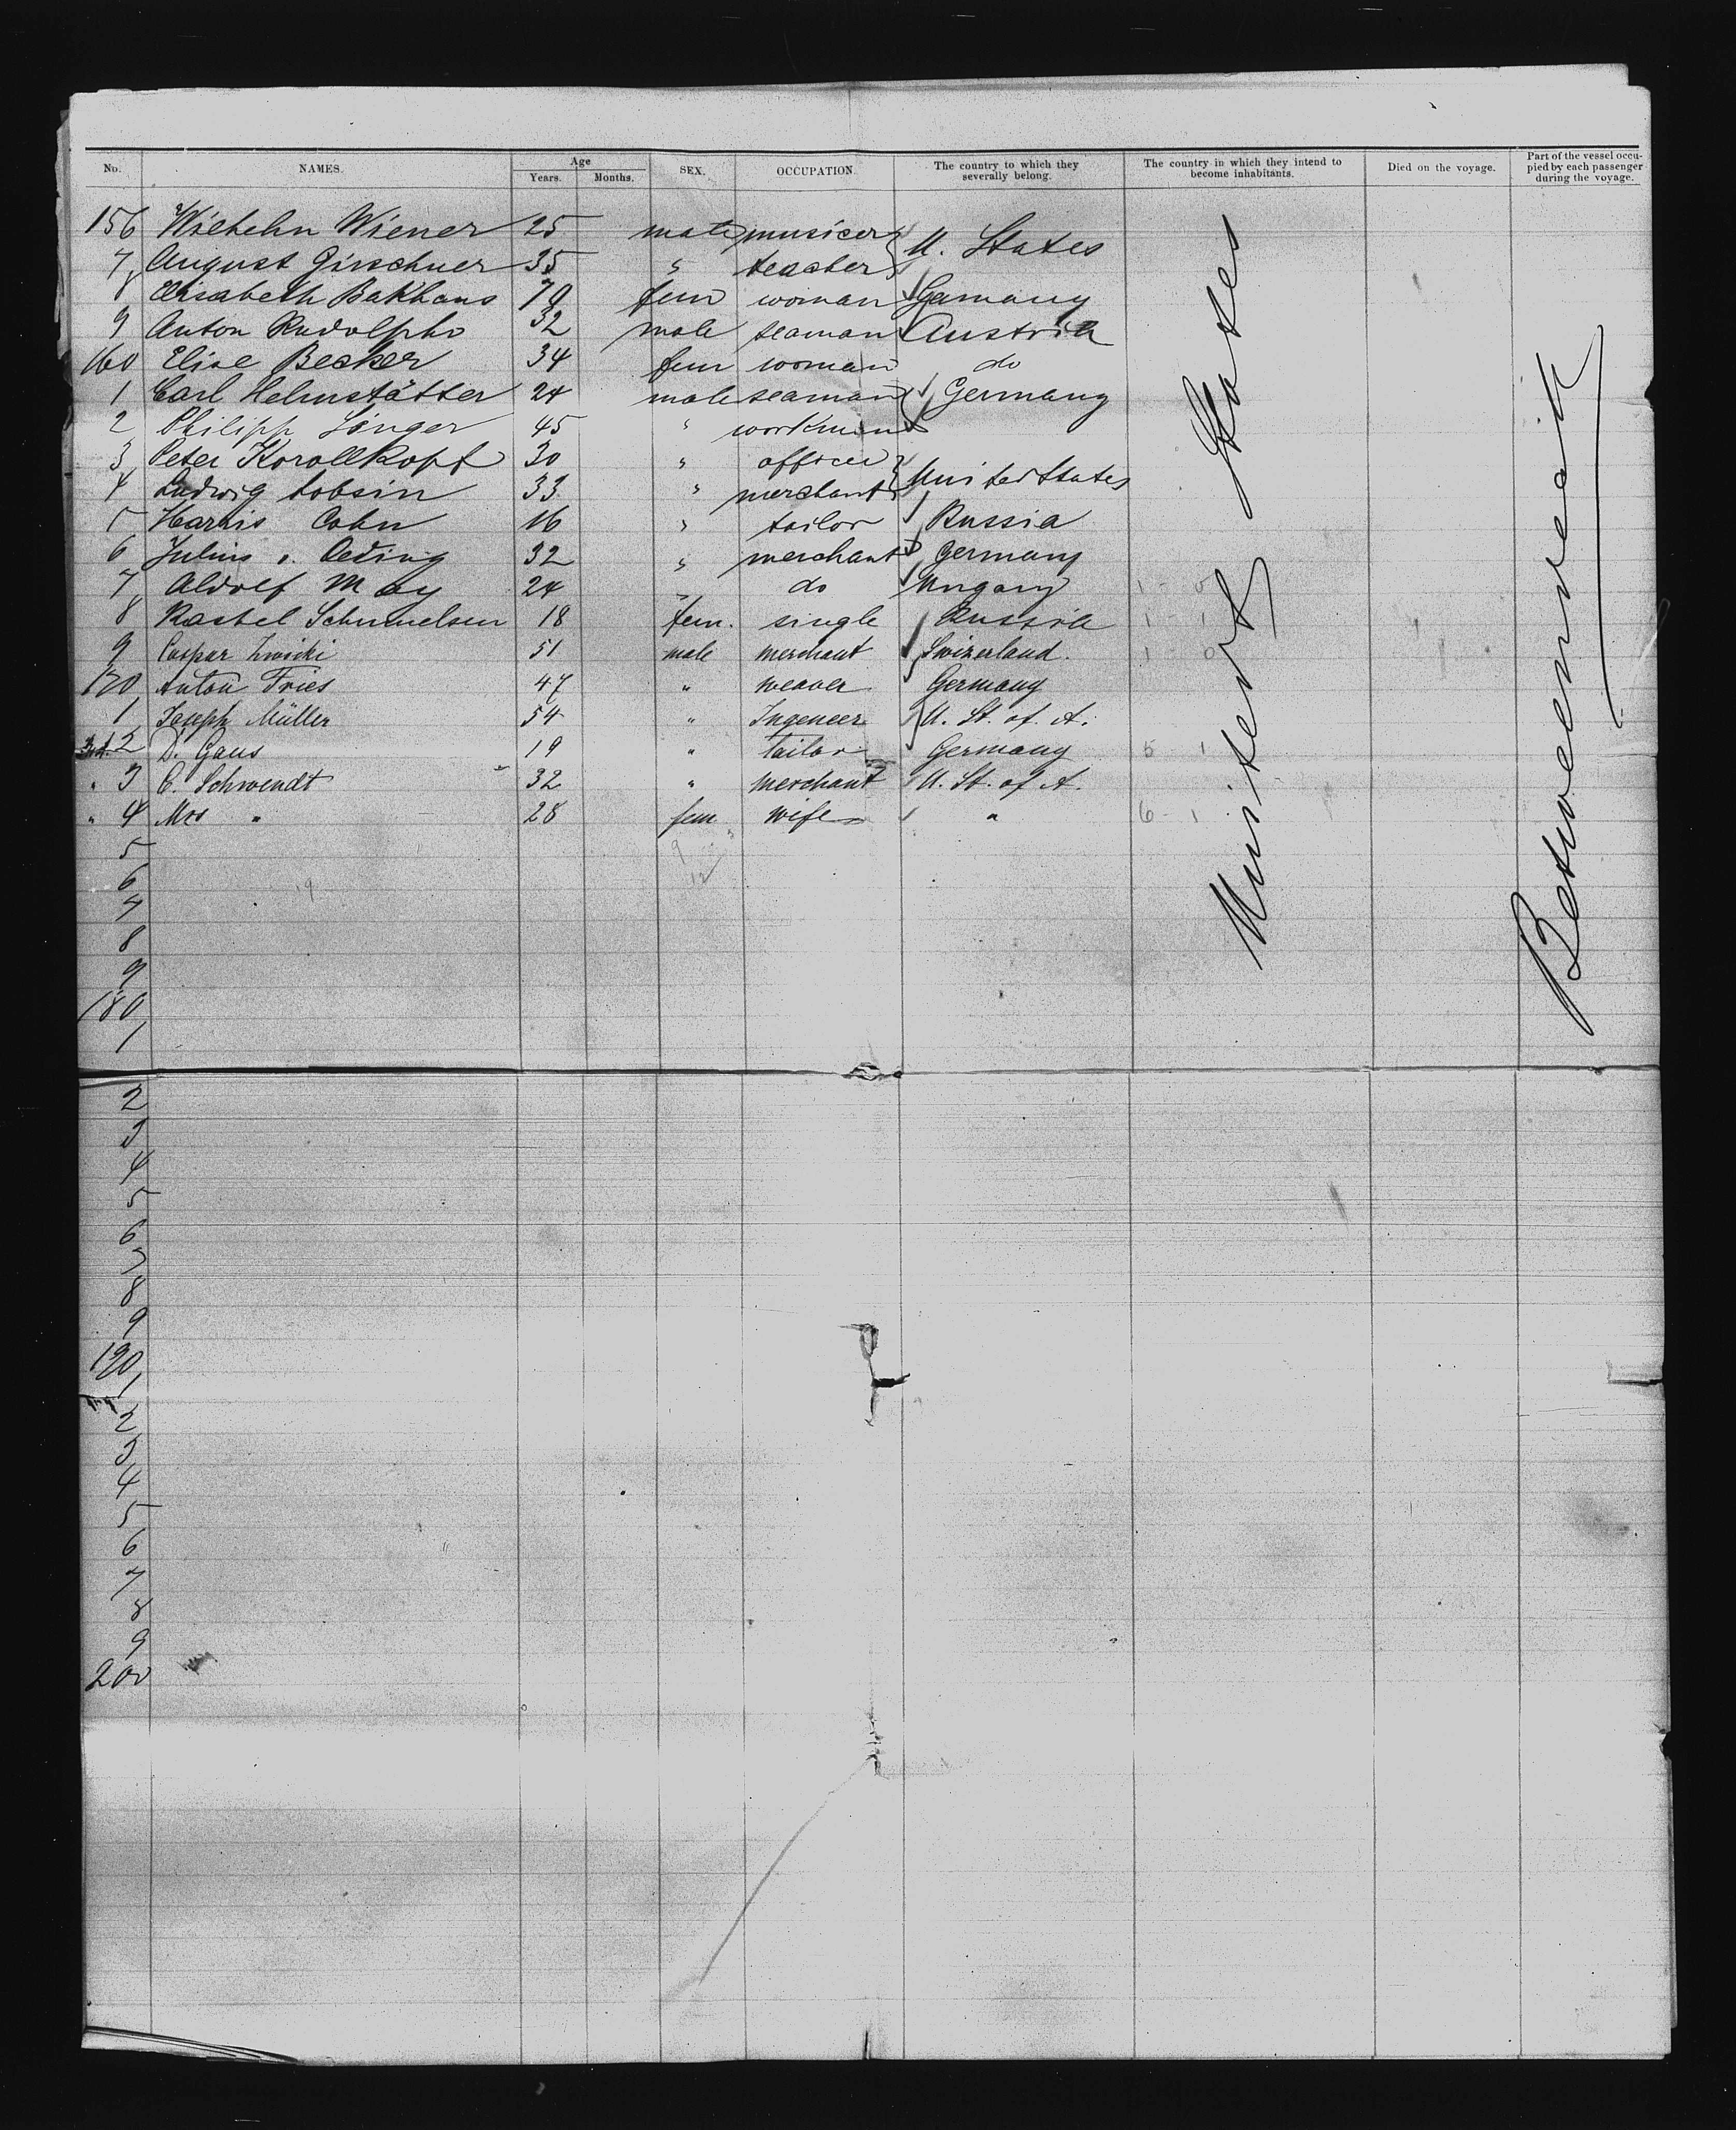 No. NAMES. Age Years. Months. SEX. OCCUPATION. The country to which they severally belong. The country in which they intend to become inhabitants. Died on the voyage. Part of the vessel occupied by each passenger during the voyage.
156 Wilhelm Wiener 25 male musicer U. States
7 August Girschner 35 " teacher
8 Elisabeth Bakhaus 70 fem woman Gemany
9 Anton Rudolpho 32 male seaman Austria
160 Elise Becker 34 fem woman do
1 Carl Helmstätter 24 male seaman Germany
2 Philipp Langer 45 " workman
3 Peter Korollkopf 30 " officer United States
4 Ludwig Lobsin 33 " merchant
5 Harris Cohn 16 " tailor Russia
6 Julius v. Oeding 32 " merchant Germany
7 Aldolf May 24 " do Ungary
8 Rachel Schmuelsen 18 fem. single Russia
9 Caspar Zwicki 51 male merchant Swizerland.
170 Anton Fries 47 " weaver Germany
1 Joseph Müller 54 " Ingeneer U. St. of. A.
2 D. Gaus 19 " tailor Germany
" 3 C. Schwendt 32 " merchant U. St. of A.
" 4 Mrs " 28 fem wife "
United States
Betweendeck
5
6
7
8
9
180
1
2
3
4
5
6
7
8
9
190
1
2
3
4
5
6
7
8
9
200